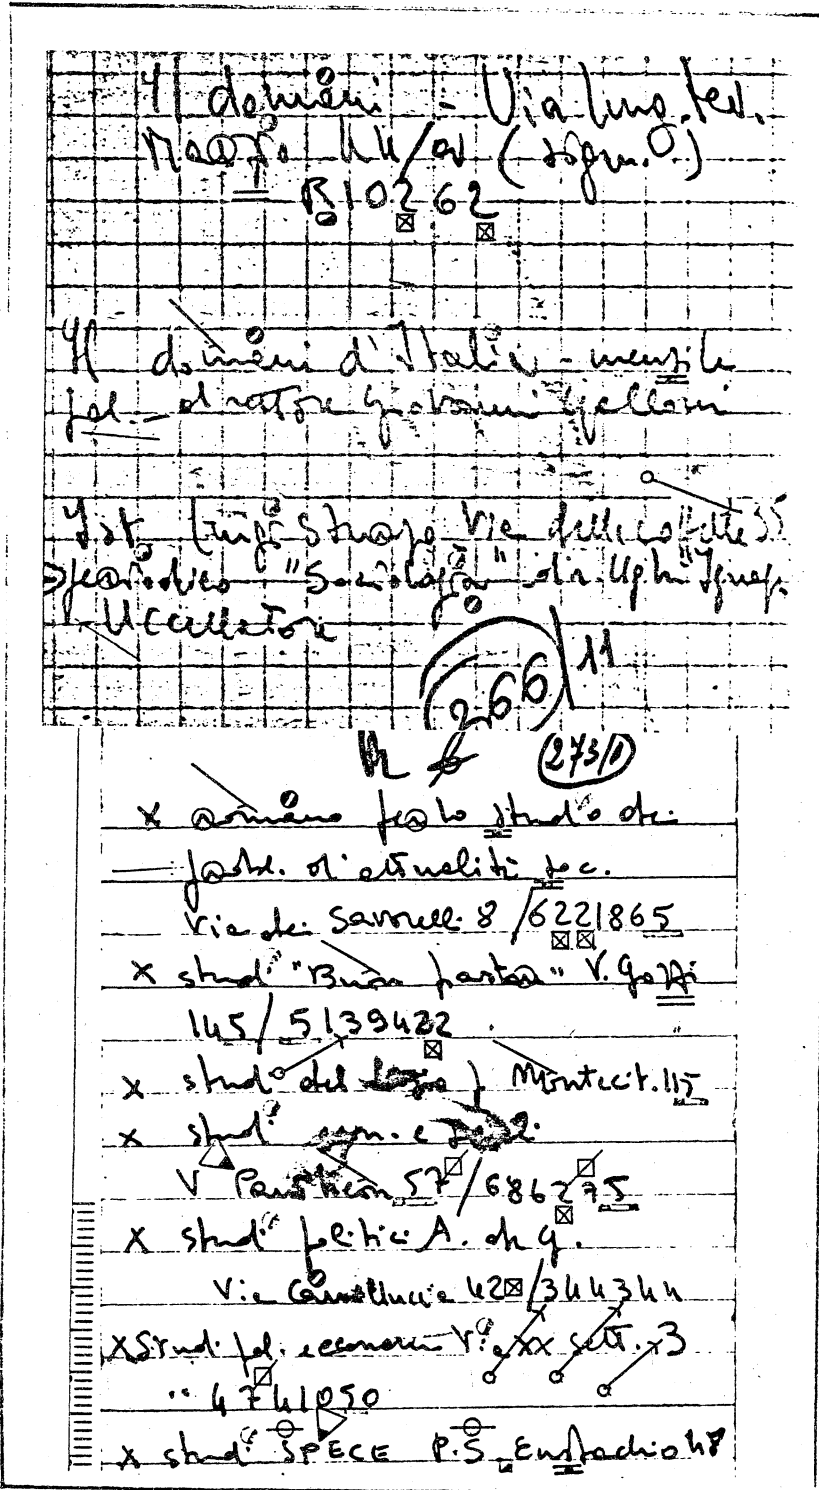 Il domani - Via Lung.tev.
44/a (sign.O.)
R10262
Il domani d'Italia - mensile
pol. - direttore Giovanni Galloni
Ist. Luigi Sturzo Via delle coppelle 35
periodico "Sociologia" dir.
Uccellatore
266/11
273/1
x romano per lo studio dei
probl. d'attualità soc.
Via dei Savorelli 8/6221865
x studi "Buon pastore" V. Gozzi
145/5139422
x studi del Montecit. 115
x studi econ. e
V Pantheon 57/686275
x studi politici A. de g.
Via Camilluccia 42/344344
x Studi pol. economici Via xx sett. 3
" 4741050
x studi SPECE P.S. Eustachio 48